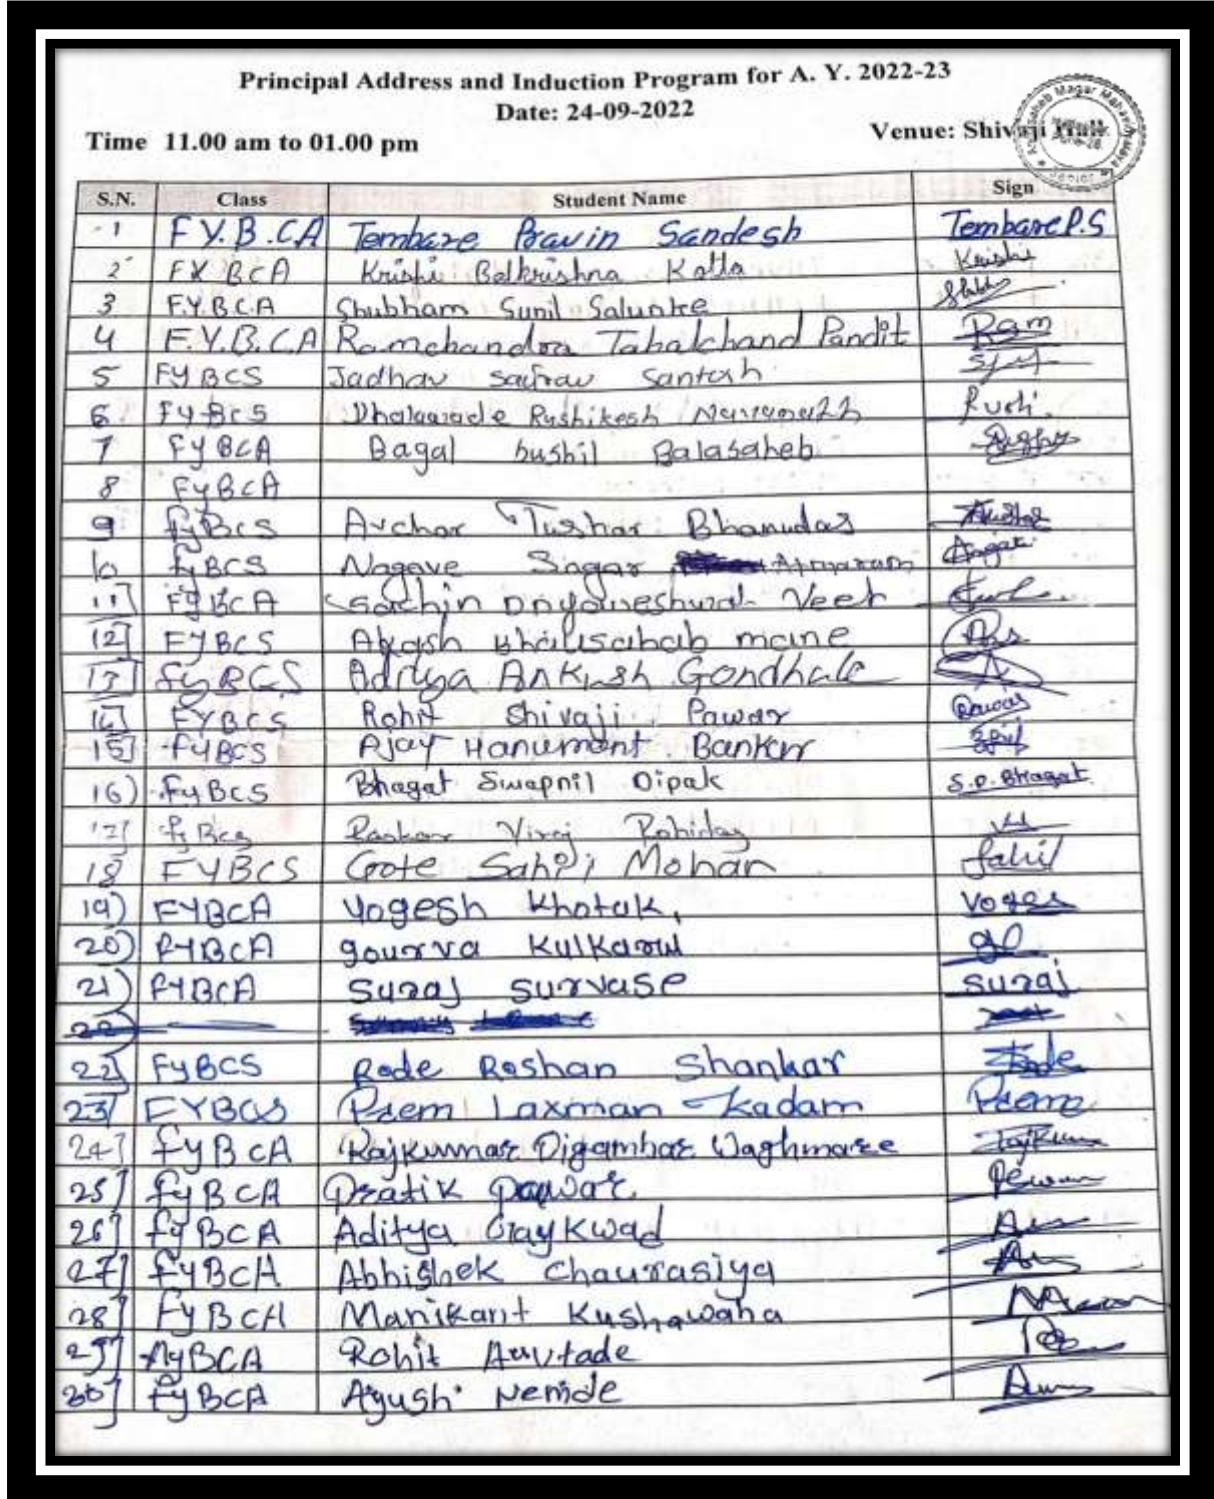 Principal Address and Induction Program for A. Y. 2022-23
Date: 24-09-2022
Time 11.00 am to 01.00 pm Venue: Shivaji Hall
S.N. Class Student Name Sign
1 F.Y.B.CA Tembare Pravin Sandesh Tembare P.S
2 FY BCA Krishi Balkrishna Kolla Krishi
3 F.Y.B.C.A Shubham Sunil Salunke
4 F.Y.B.C.A Ramchandra Tabalchand Pandit Ram
5 FYBCS Jadhav Santosh
6 FYBCS Rushikesh Rushi
7 FYBCA Bagal Sushil Balasaheb
8 FyBCA
9 FyBCS Archar Tushar Bhanudas Tushar
10 FyBCS Nagave Sagar Atmaram
11] FyBCA Sachin Dnyaneshwar Veer
12] FYBCS Akash mane
13] FyBCS Aditya Ankush Gondhale
14] FYBCS Rohit Shivaji Pawar Pawar
15] FYBCS Ajay Hanumant Bankar
16) FyBCS Bhagat Swapnil Dipak S.D. Bhagat
17] FyBCS Raskar Viraj Rohidas
18 FYBCS Gote Sahil Mohan Sahil
19) FYBCA Yogesh Khotak, Yoges
20) FYBCA gourva Kulkarni
21) FYBCA Suraj Survase Suraj
22)
22] FyBCS Rode Roshan Shankar Rode
23] FYBCS Prem Laxman Kadam Prem
24] FyBCA Rajkumar Digambar Waghmare Rajkum
25] FyBCA Pratik Pawar
26] FyBCA Aditya Gaykwad
27] FyBCA Abhishek Chaurasiya
28] FyBCA Manikant Kushawaha
29] FyBCA Rohit Auvtade
30] FyBCA Ayush Nemde